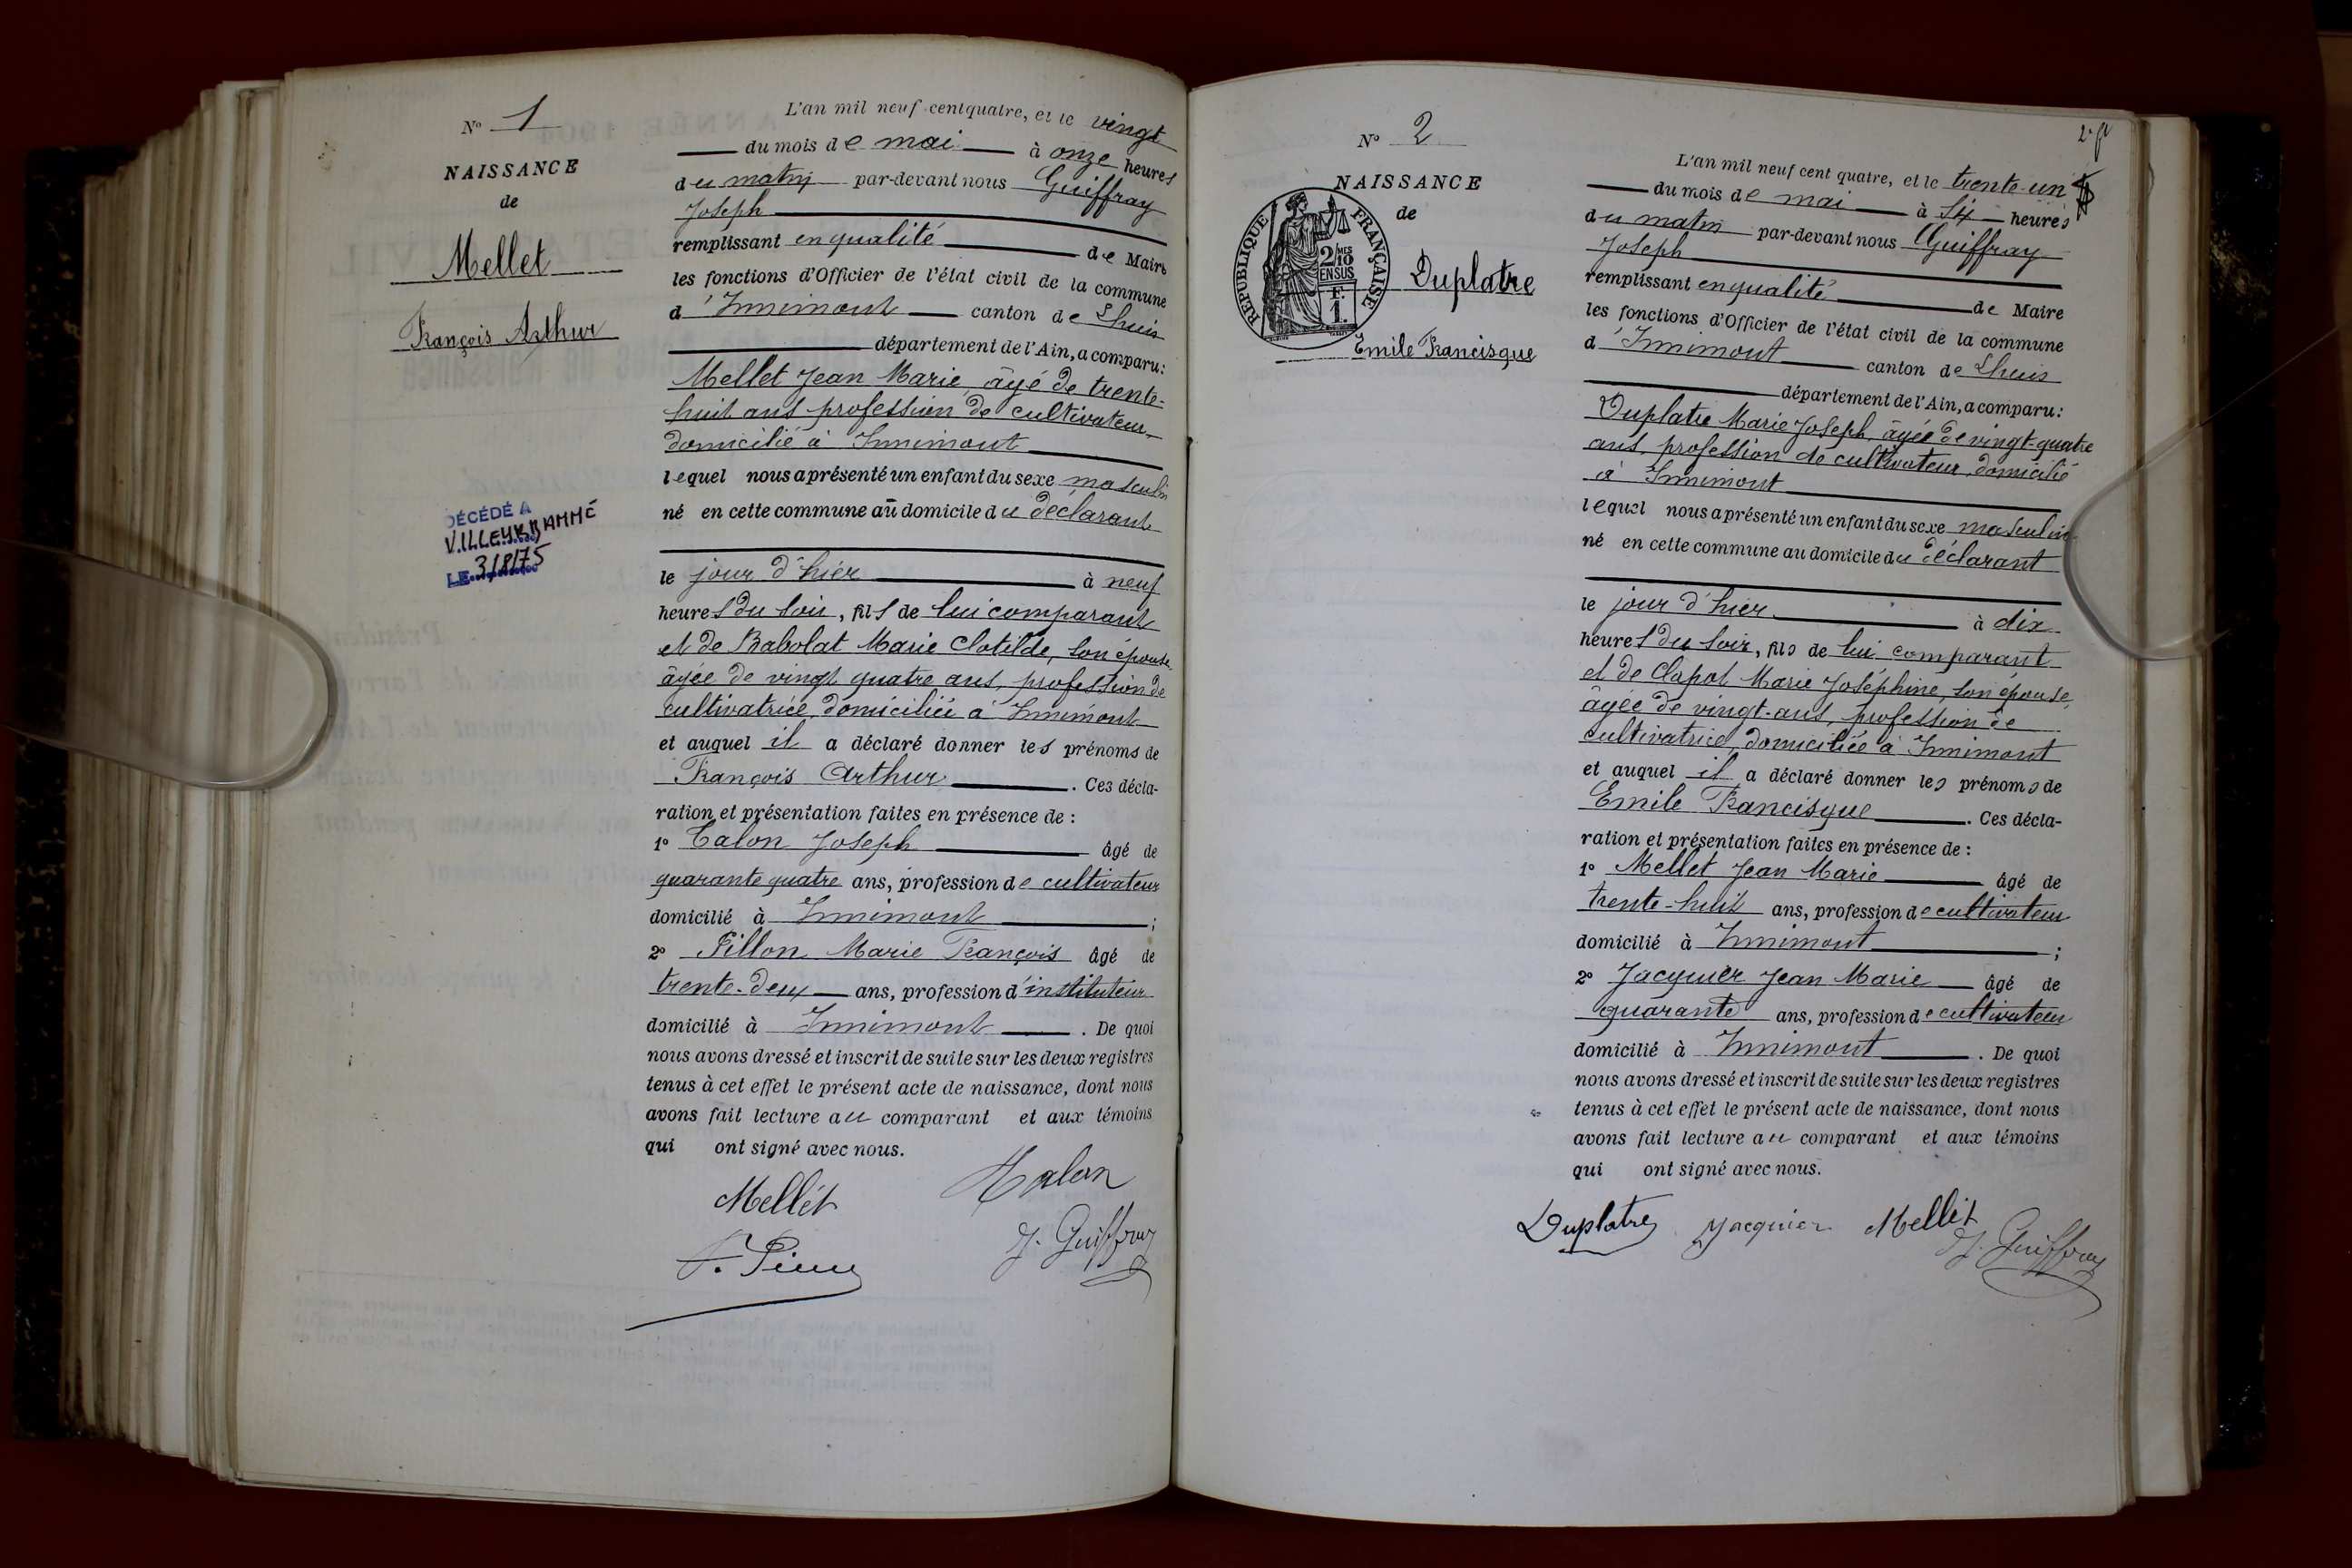 N° 1
NAISSANCE
de
Mellet
François Arthur
DÉCÉDÉ A
VILLEURBANNE
LE 3/8/75
L'an mil neuf cent quatre, et le vingt
du mois de mai à onze heures
du matin par-devant nous Guiffray
Joseph
remplissant en qualité de Maire
les fonctions d'Officier de l'état civil de la commune
d'Innimont canton de Lhuis
département de l'Ain, a comparu:
Mellet Jean Marie, âgé de trente-
huit ans profession de cultivateur,
domicilié à Innimont
lequel nous a présenté un enfant du sexe masculin
né en cette commune au domicile du déclarant
le jour d'hier à neuf
heures du soir, fils de lui comparant
et de Babolat Marie Clotilde, son épouse
âgée de vingt quatre ans, profession de
cultivatrice, domiciliée à Innimont
et auquel il a déclaré donner les prénoms de
François Arthur. Ces décla-
ration et présentation faites en présence de :
1° Talon Joseph âgé de
quarante quatre ans, profession de cultivateur
domicilié à Innimont ;
2° Fillon Marie François âgé de
trente-deux ans, profession d'instituteur
domicilié à Innimont. De quoi
nous avons dressé et inscrit de suite sur les deux registres
tenus à cet effet le présent acte de naissance, dont nous
avons fait lecture au comparant et aux témoins
qui ont signé avec nous.
Mellet Talon
J. Guiffray
N° 2
NAISSANCE
de
Duplatre
Emile Francisque
REPUBLIQUE FRANÇAISE
2/10 MES
EN SUS
F.
1.
L'an mil neuf cent quatre, et le trente-un
du mois de mai à six heures
du matin par-devant nous Guiffray
Joseph
remplissant en qualité de Maire
les fonctions d'Officier de l'état civil de la commune
d'Innimont canton de Lhuis
département de l'Ain, a comparu:
Duplatre Marie Joseph, âgée de vingt-quatre
ans, profession de cultivateur, domicilié
à Innimont
lequel nous a présenté un enfant du sexe masculin
né en cette commune au domicile du déclarant
le jour d'hier à dix
heures du soir, fils de lui comparant
et de Clapot Marie Joséphine, son épouse,
âgée de vingt-ans, profession de
cultivatrice, domiciliée à Innimont
et auquel il a déclaré donner les prénoms de
Emile Francisque. Ces décla-
ration et présentation faites en présence de :
1° Mellet Jean Marie âgé de
trente-huit ans, profession de cultivateur
domicilié à Innimont ;
2° Jacquier Jean Marie âgé de
quarante ans, profession de cultivateur
domicilié à Innimont. De quoi
nous avons dressé et inscrit de suite sur les deux registres
tenus à cet effet le présent acte de naissance, dont nous
avons fait lecture au comparant et aux témoins
qui ont signé avec nous.
Duplatre Jacquier Mellet
J. Guiffray